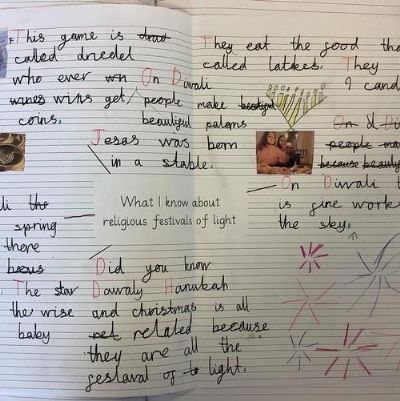 This game is drad
called driedel
who ever wn
wines wins get
coins.
On Diwali
people make beatigul
beautigul patorns
Jesas was born
in a stable.
They eat the good tha
called latkes. They
9 cand
On Di
people ma
because beauty
On Diwali t
is gire work
the sky.
What I know about
religious festivals of light
li the
spring
there
The star
the wise
baby
Did you know
Dawaly Hanukah
and christmas is all
ret related because
they are all the
gestaval of to light.